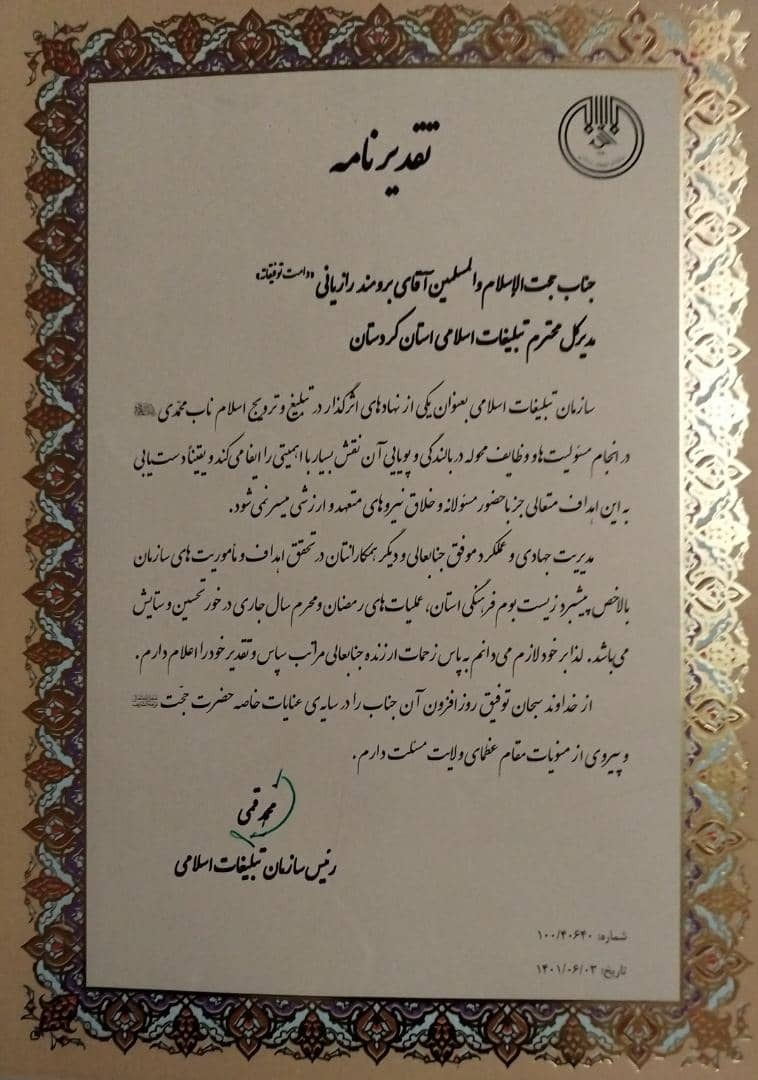 تقدیرنامه
جناب حجت الاسلام والمسلمین آقای برومند رازیانی «دامت توفیقاته»
مدیرکل محترم تبلیغات اسلامی استان کردستان
سازمان تبلیغات اسلامی بعنوان یکی از نهادهای اثرگذار در تبلیغ و ترویج اسلام ناب محمدی
در انجام مسئولیت‌ها و وظایف محوله در بالندگی و پویایی آن نقش بسیار با اهمیتی را ایفا می‌کند و یقیناً دست‌یابی
به این اهداف متعالی جز با حضور مسئولانه و خلاق نیروهای متعهد و ارزشی میسر نمی‌شود.
مدیریت جهادی و عملکرد موفق جنابعالی و دیگر همکارانتان در تحقق اهداف و مأموریت‌های سازمان
بالاخص پیشبرد زیست بوم فرهنگی استان، عملیات‌های رمضان و محرم سال جاری در خور تحسین و ستایش
می‌باشد. لذا بر خود لازم می‌دانم به پاس زحمات ارزنده جنابعالی مراتب سپاس و تقدیر خود را اعلام دارم.
از خداوند سبحان توفیق روزافزون آن جناب را در سایه‌ی عنایات خاصه حضرت حجّت
و پیروی از منویات مقام عظمای ولایت مسئلت دارم.
محمد قمی
رئیس سازمان تبلیغات اسلامی
شماره: ۱۰۰/۴۰۶۴۰
تاریخ: ۱۴۰۱/۰۶/۰۳